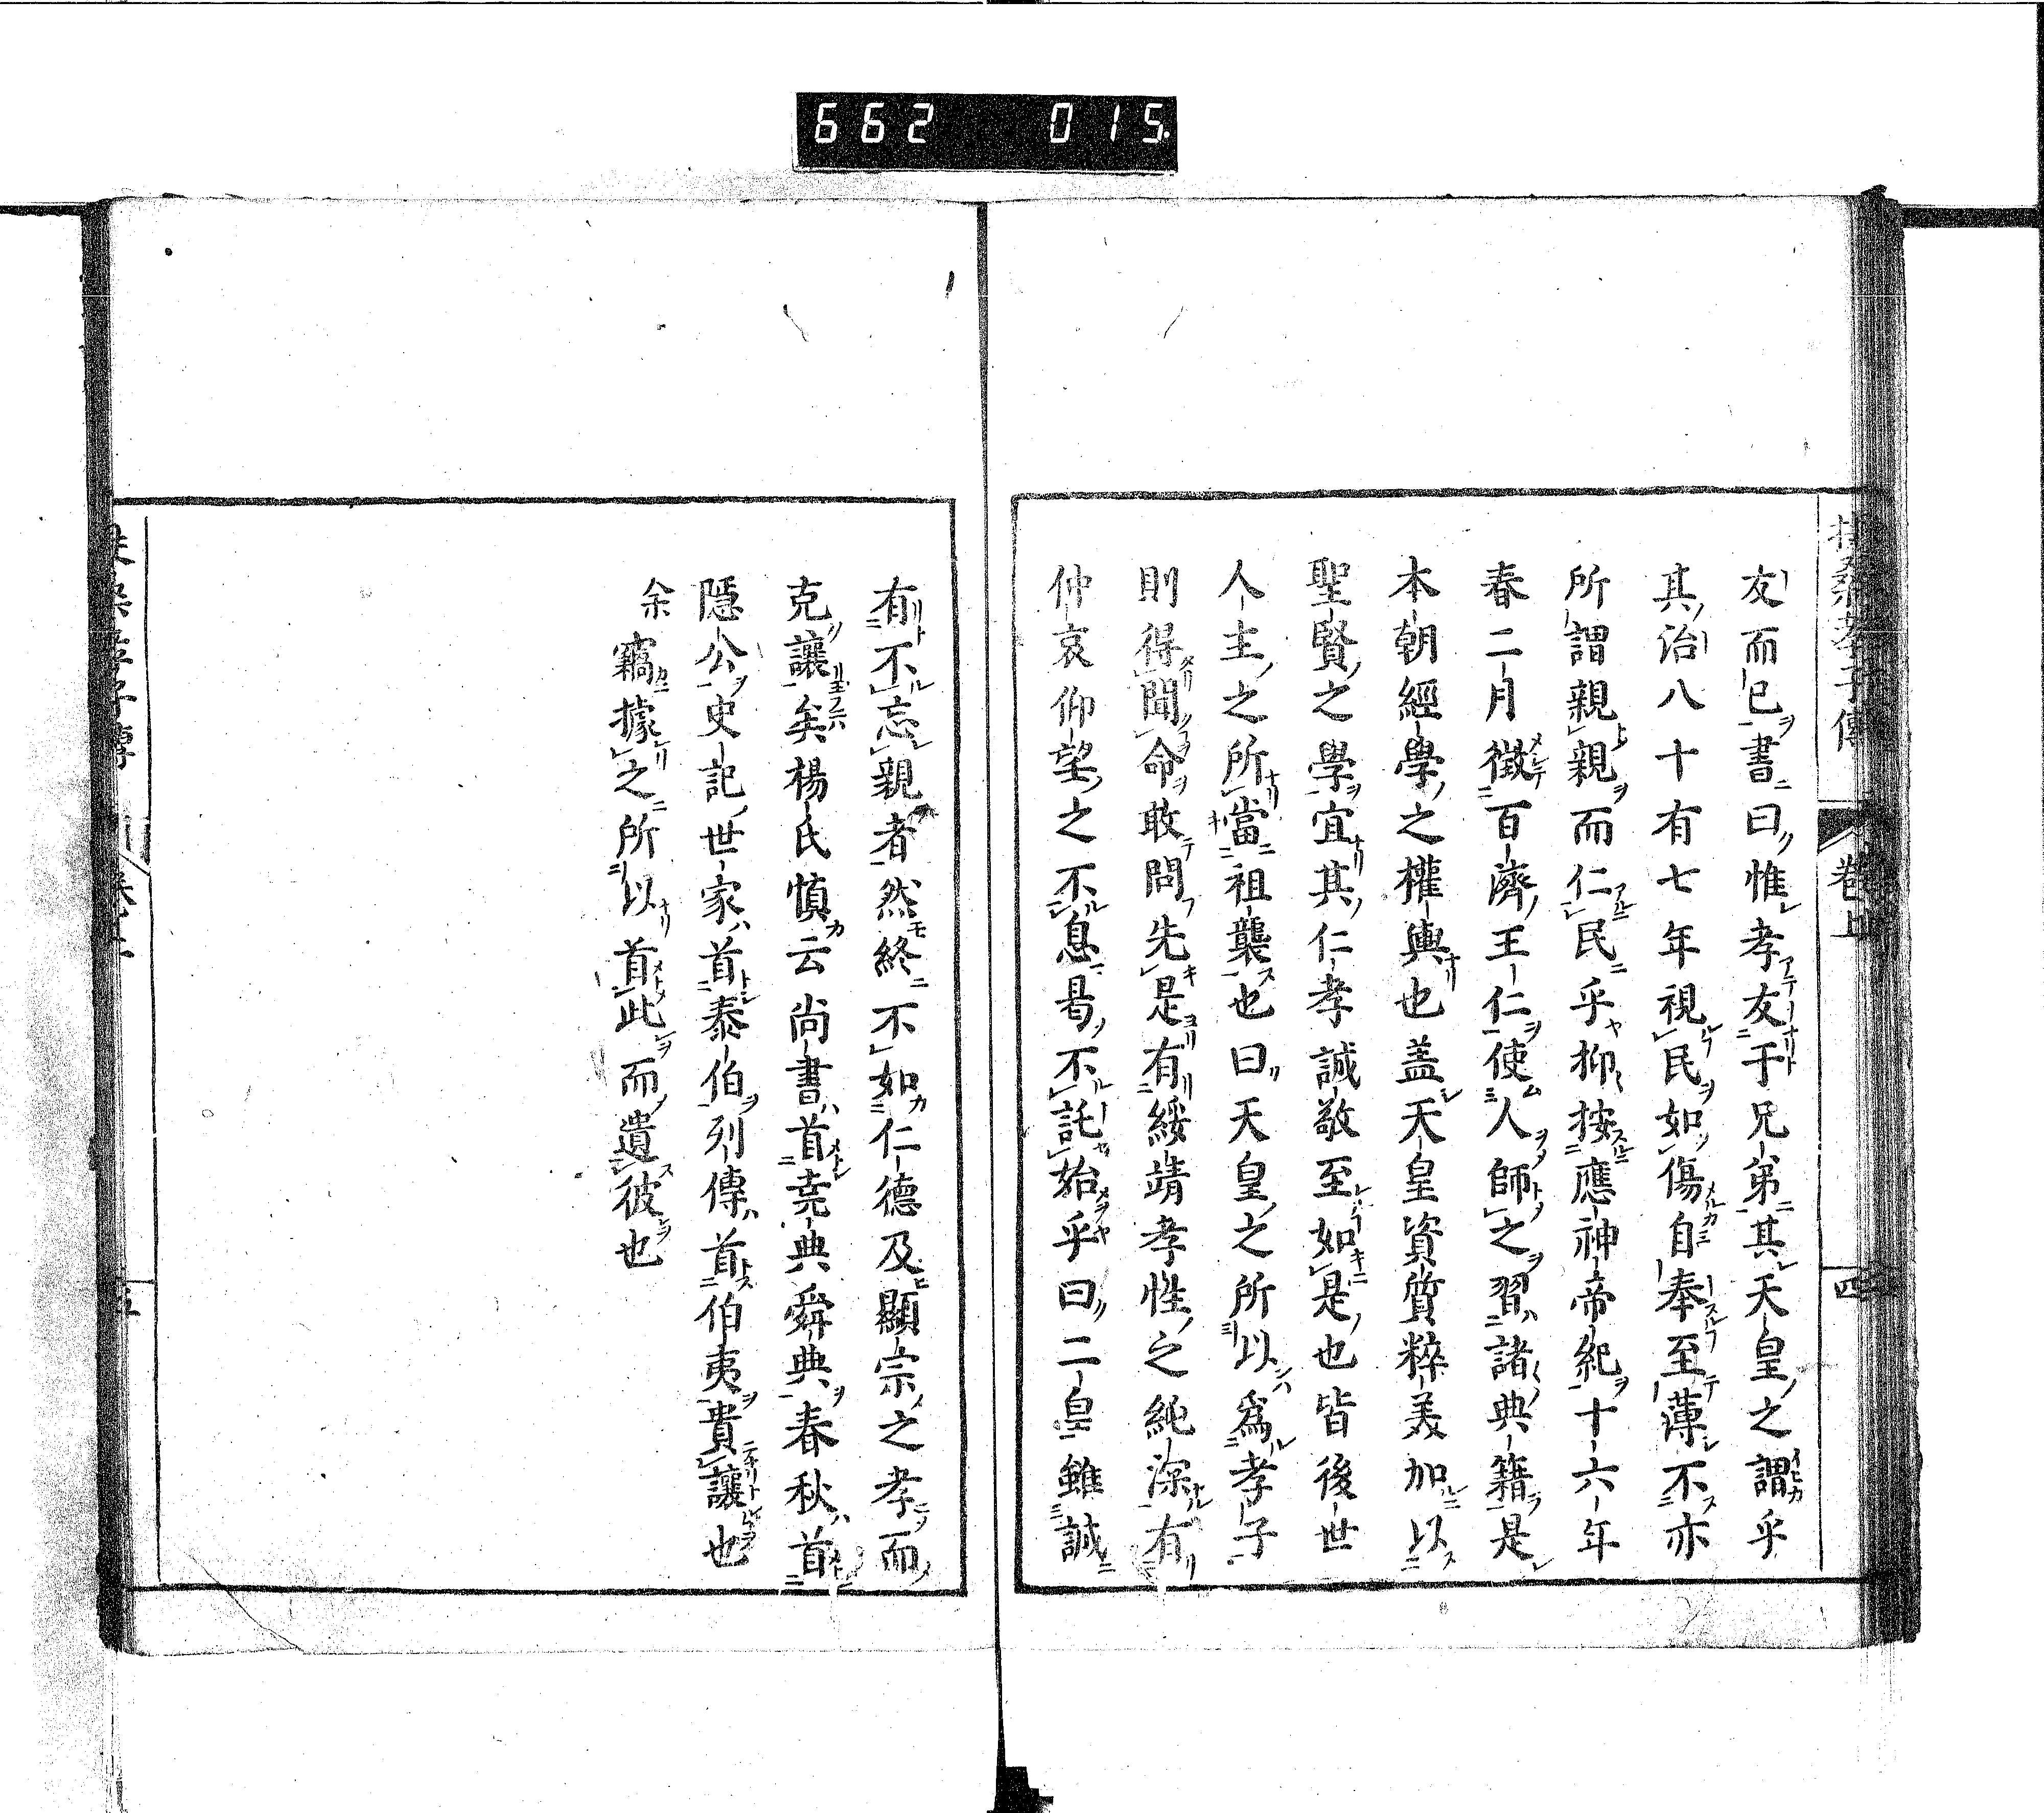 662 015.
友而已書曰惟孝友于兄弟其天皇之謂乎
其治八十有七年視民如傷自奉至薄不亦
所謂親親而仁民乎抑按應神帝紀十六年
春二月徵百濟王仁使人師之習諸典籍是
本朝經學之權輿也盖天皇資質粹美加以
聖賢之學宜其仁孝誠敬至如是也皆後世
人主之所當祖襲也曰天皇之所以爲孝子
則得聞命敢問先是有綏靖孝性之純深有
仲哀仰望之不息曷不託始乎曰二皇雖誠
有不忘親者然終不如仁德及顯宗之孝而
克讓矣楊氏慎云尚書首堯典舜典春秋首
隱公史記世家首泰伯列傳首伯夷貴讓也
余竊據之所以首此而遺彼也
孝子傳 卷上 四